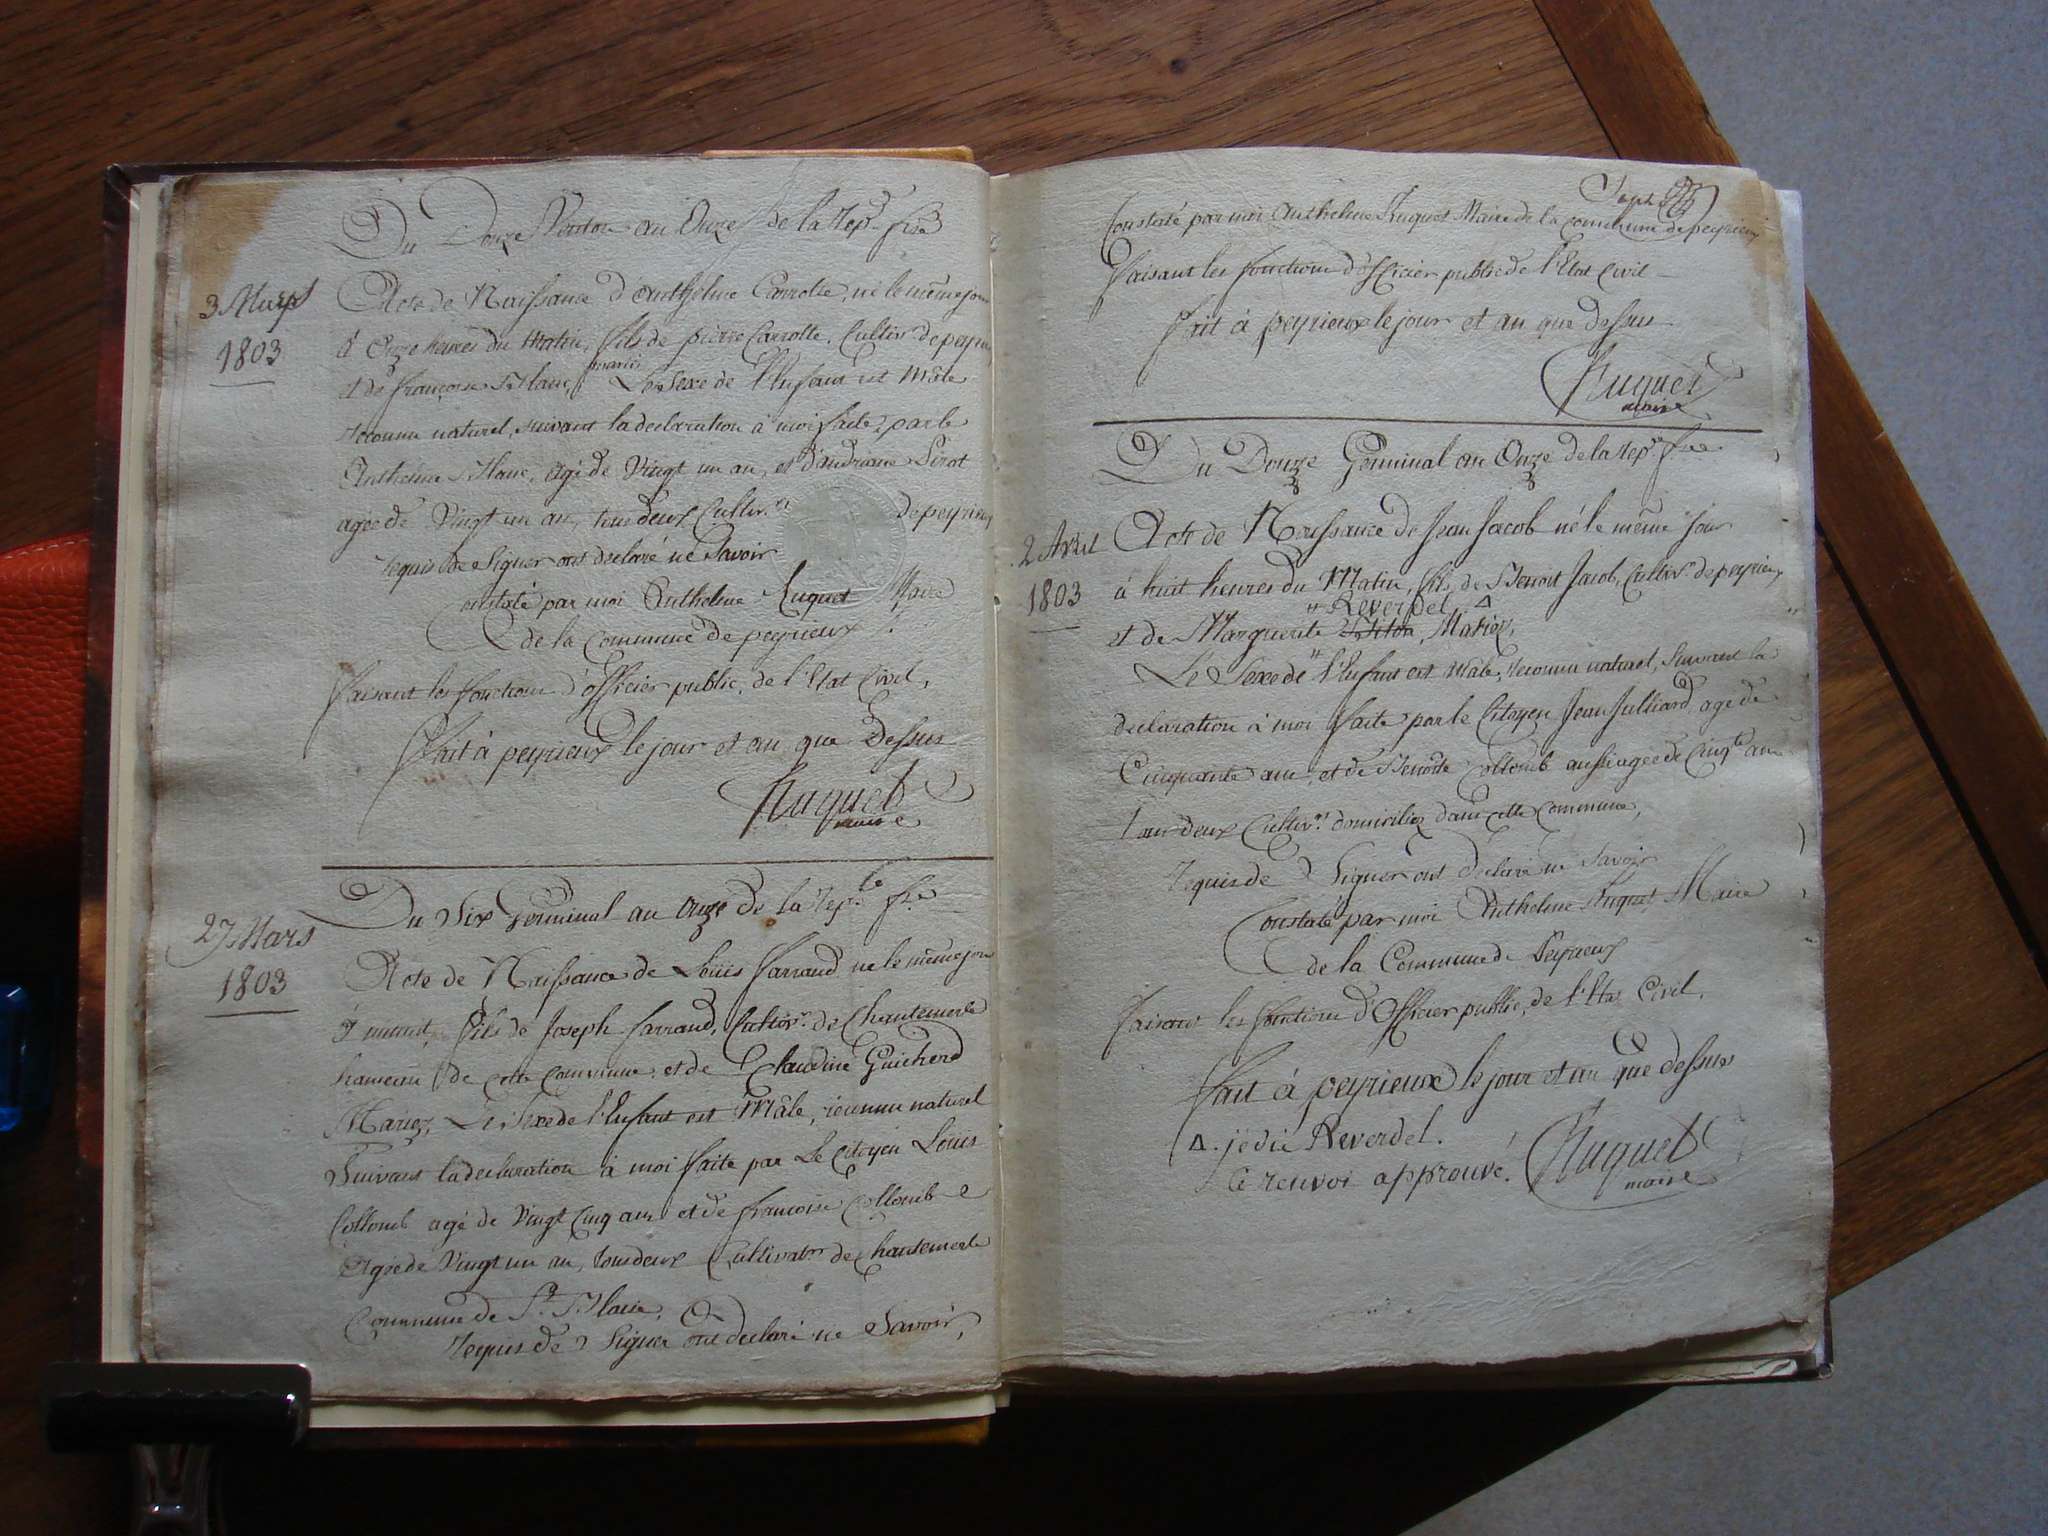 Du Douze Ventose an Onze de la Rep.e fse
3 Mars
1803
Acte de Naissance d'Anthelme Carrotte, né le même jour
à Onze heures du Matin, fils de pierre Carrotte, Cultivr. de peyrieux
et de françoise Blanc, mariés Le Sexe de l'Enfant est Mâle
reconnu naturel, suivant la declaration à moi faite, par le
Anthelme Blanc, agé de Vingt un an, et d'andréanne
agée de Vingt un an, tous deux Cultivrs. de peyrieux
requis de Signer ont declaré ne Savoir
constaté par moi Anthelme Huguet Maire
de la Commune de peyrieux
faisant les fonctions d'officier public, de l'Etat Civil,
fait à peyrieux le jour et an que Dessus
Huguet
maire
Du Six Germinal an Onze de la Rep.e fse
27 Mars
1803
Acte de Naissance de Loüis farraud né le même jour
à minuit, fils de Joseph farraud, Cultivr. de Chantemerle
hameau de cette commune, et de Claudine Guicherd
Mariez, Le Sexe de l'Enfant est Mâle, reconnu naturel
Suivant la declaration à moi faite par Le Citoyen Loüis
Collomb agé de Vingt Cinq ans et de francoise Collomb
Agée de Vingt un an, tous deux Cultivatrs de Chantemerle
Commune de St. Blaise,
Requis de Signer ont declaré ne Savoir,
Sept
Constaté par moi Anthelme Huguet Maire de la Commune de peyrieux
faisant les fonctions d'officier public de l'Etat Civil
fait à peyrieux le jour et an que dessus
Huguet
maire
Du Douze Germinal an Onze de la Rep.e fse
2 Avril
1803
Acte de Naissance de Jean Jacob né le même jour
à huit heures du Matin, fils de Benoit Jacob, Cultivr. de peyrieux
" Reverdel Δ
et de Marguerite Mariez,
Le Sexe de l'Enfant est Mâle, reconnu naturel, Suivant la
declaration à moi faite par le Citoyen Jean Julliard agé de
Cinquante ans, et de Benoite Collomb aussi agée de Cinqte ans
Tous deux Cultivrs. domiciliez dans cette Commune,
requis de Signer ont declaré ne Savoir
Constaté par moi Anthelme Huguet Maire
de la Commune de Peyrieux
faisant les fonctions d'Officier public, de l'Etat Civil,
fait à peyrieux le jour et an que dessus
Δ. je dis Reverdel.
Ce renvoi approuvé.
Huguet
maire